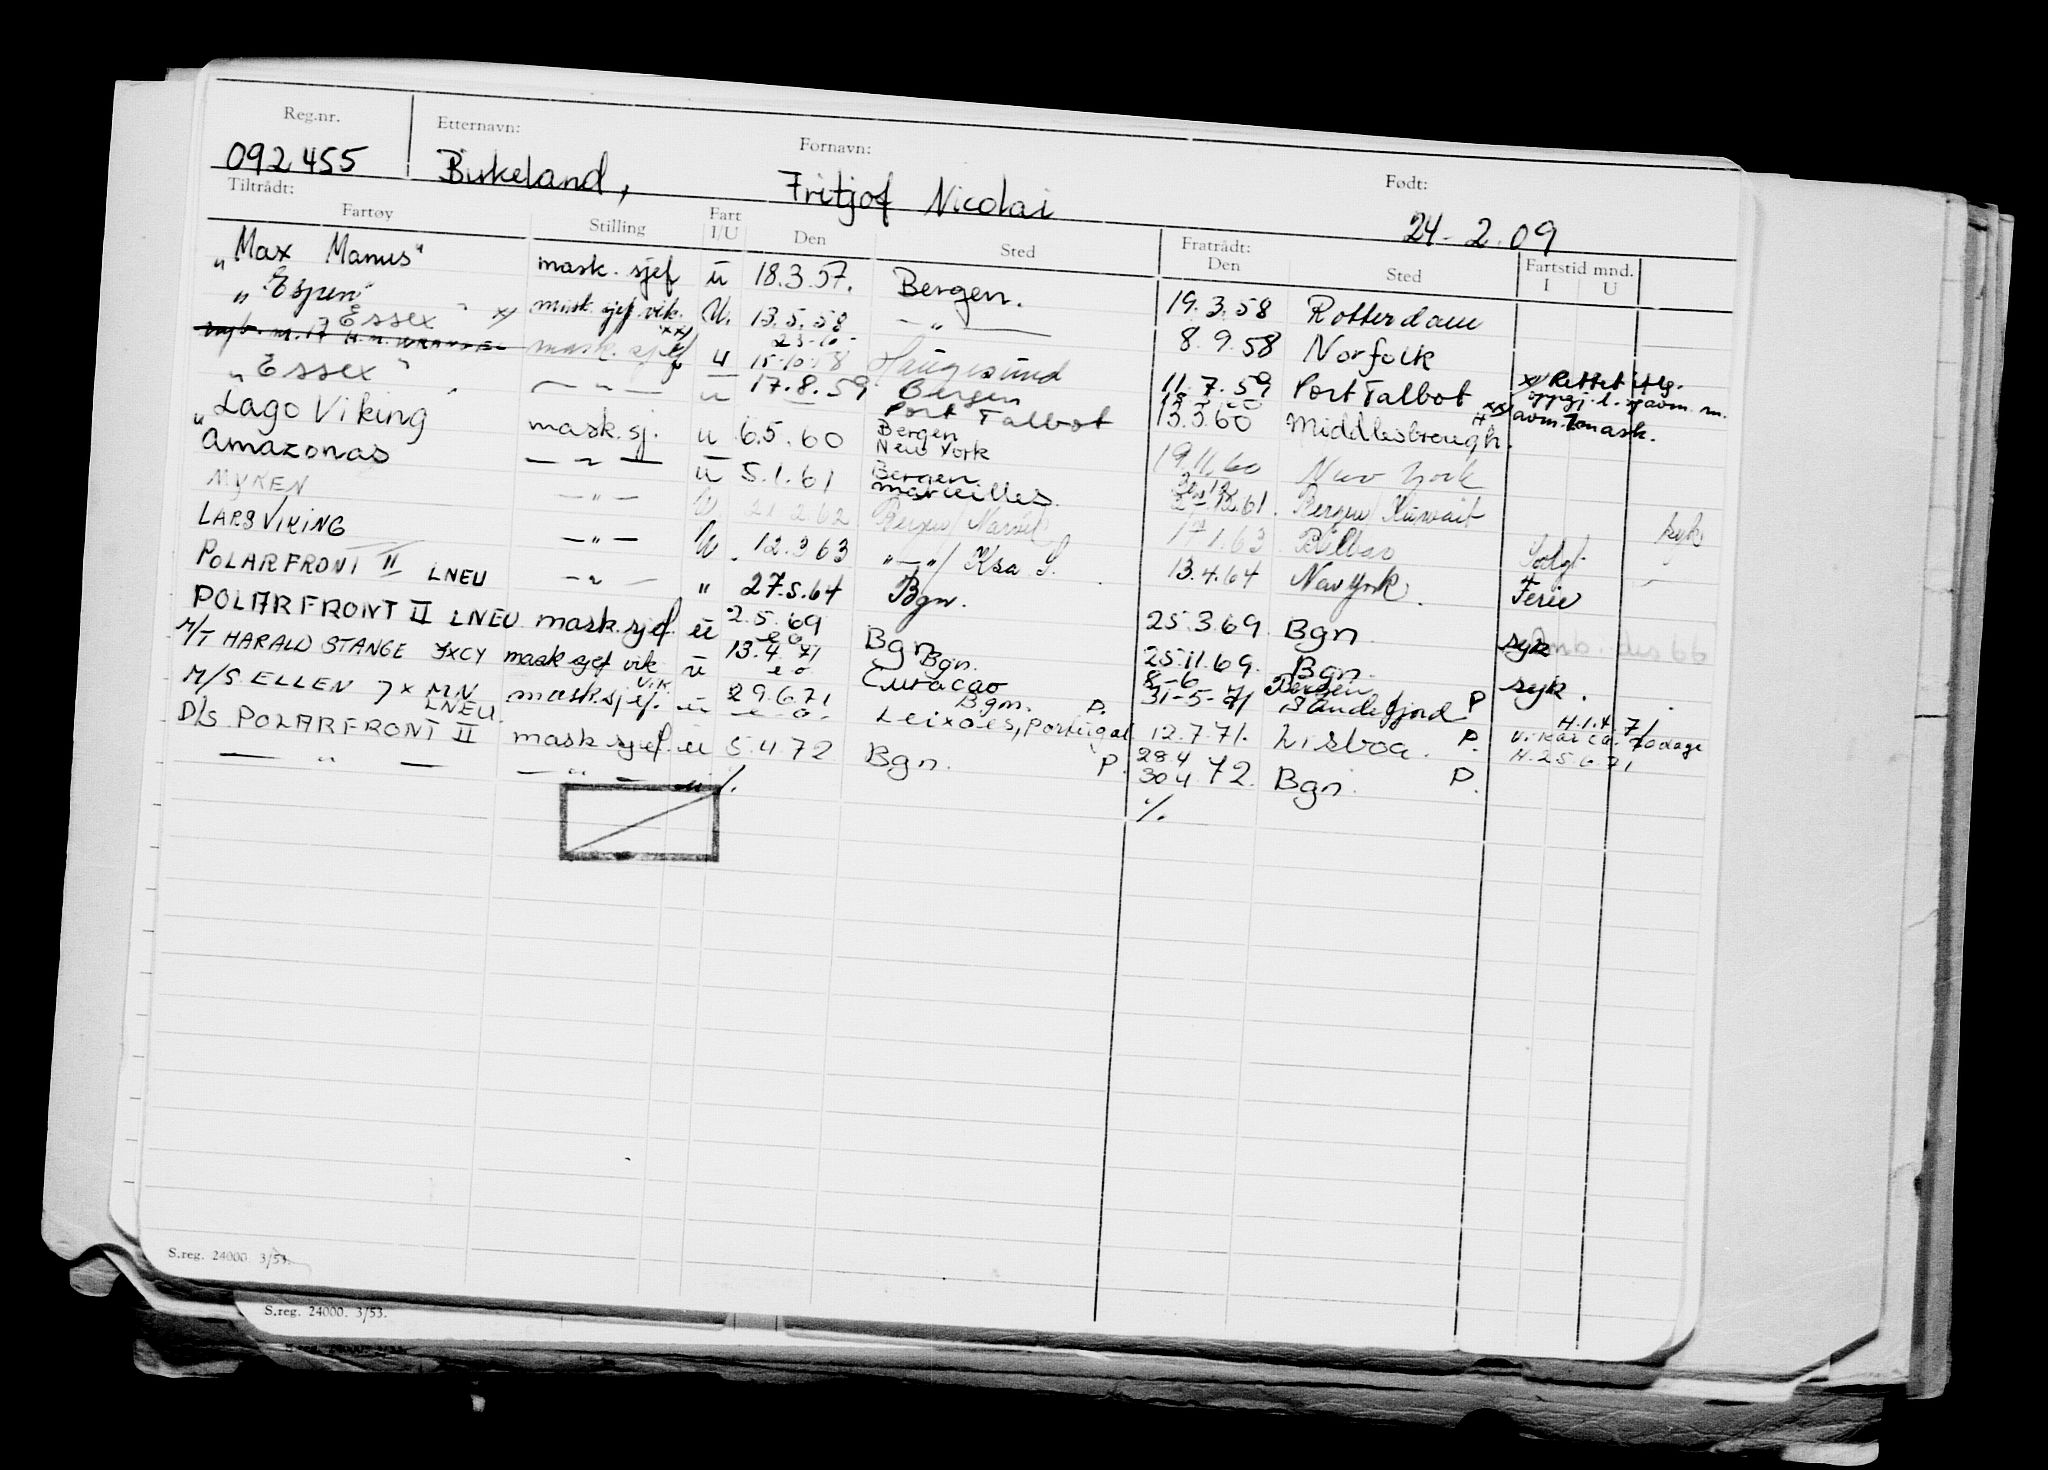 Reg.nr. Etternavn: Fornavn: Født:
092455 Birkeland, Fritjof Nicolai 24-2.09
Tiltrådt: Fratrådt:
Fartøy Stilling Fart I/U Den Sted Den Sted Fartstid mnd. I U
"Max Manus" mask. sjef u 18.3.57. Bergen. 19.3.58 Rotterdam
"Espen" mask. sjef vik. U. 13.5.58 — " — 8.9.58 Norfolk
"Essex" x) mask. sjef xx) u 23-10- 15.10.58 Haugesund 11.7.59 Port Talbot x) Rettet iflg. oppgj. l. avm. m.
"Essex" — " — u 17.8.59 Bergen Port Talbot 13.3.60 Middlesbrough. xx) avm. mask.
"Lago Viking mask. sj. u 6.5.60 Bergen New York 19.11.60 New York
Amazonas — " — u 5.1.61 Bergen Marseilles 12.61. Bergen/Kuwait
MYKEN — " — U 21.2.62 Bergen/Narvik 17.1.63 Bilbao Solgt syk
LARS VIKING — " — U. 12.3.63 " — " / Ksa S. 13.4.64 New York. Ferie
POLARFRONT II LNEU — " — " 27.5.64 Bgn. 25.3.69 Bgn. syk
POLARFRONT II LNEU mask. sjef. u 2.5.69 Bgn 25.11.69. Bgn. syk.
M/T HARALD STANGE JXCY mask sjef vik u 13.4.71 Bgn. Curacao 8-6 31-5-71 Bergen Sandefjord P H.1.4.71
M/S ELLEN JXMN mask. sjef. vik. u 29.6.71 Bgn. P. Leixoes, Portugal 12.7.71. Lisboa. P. Vikar ca. 70 dage H.25.6.71
D/S POLARFRONT II LNEU. mask sjef. u 5.4.72 Bgn. P. 28.4 30.4.72. Bgn. P.
— " — — " — u %. %.
S.reg. 24000. 3/53.
S.reg. 24000. 3/53.